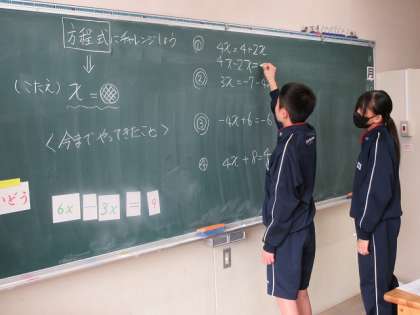 方程式にチャレンジしよう
(こたえ) x =
<今までやってきたこと>
6x - 3x = 9
いどう
① 4x = 4 + 2x
4x - 2x =
② 3x = -7 - 4
③ -4x + 6 = -6
④ 4x + 8 = 4